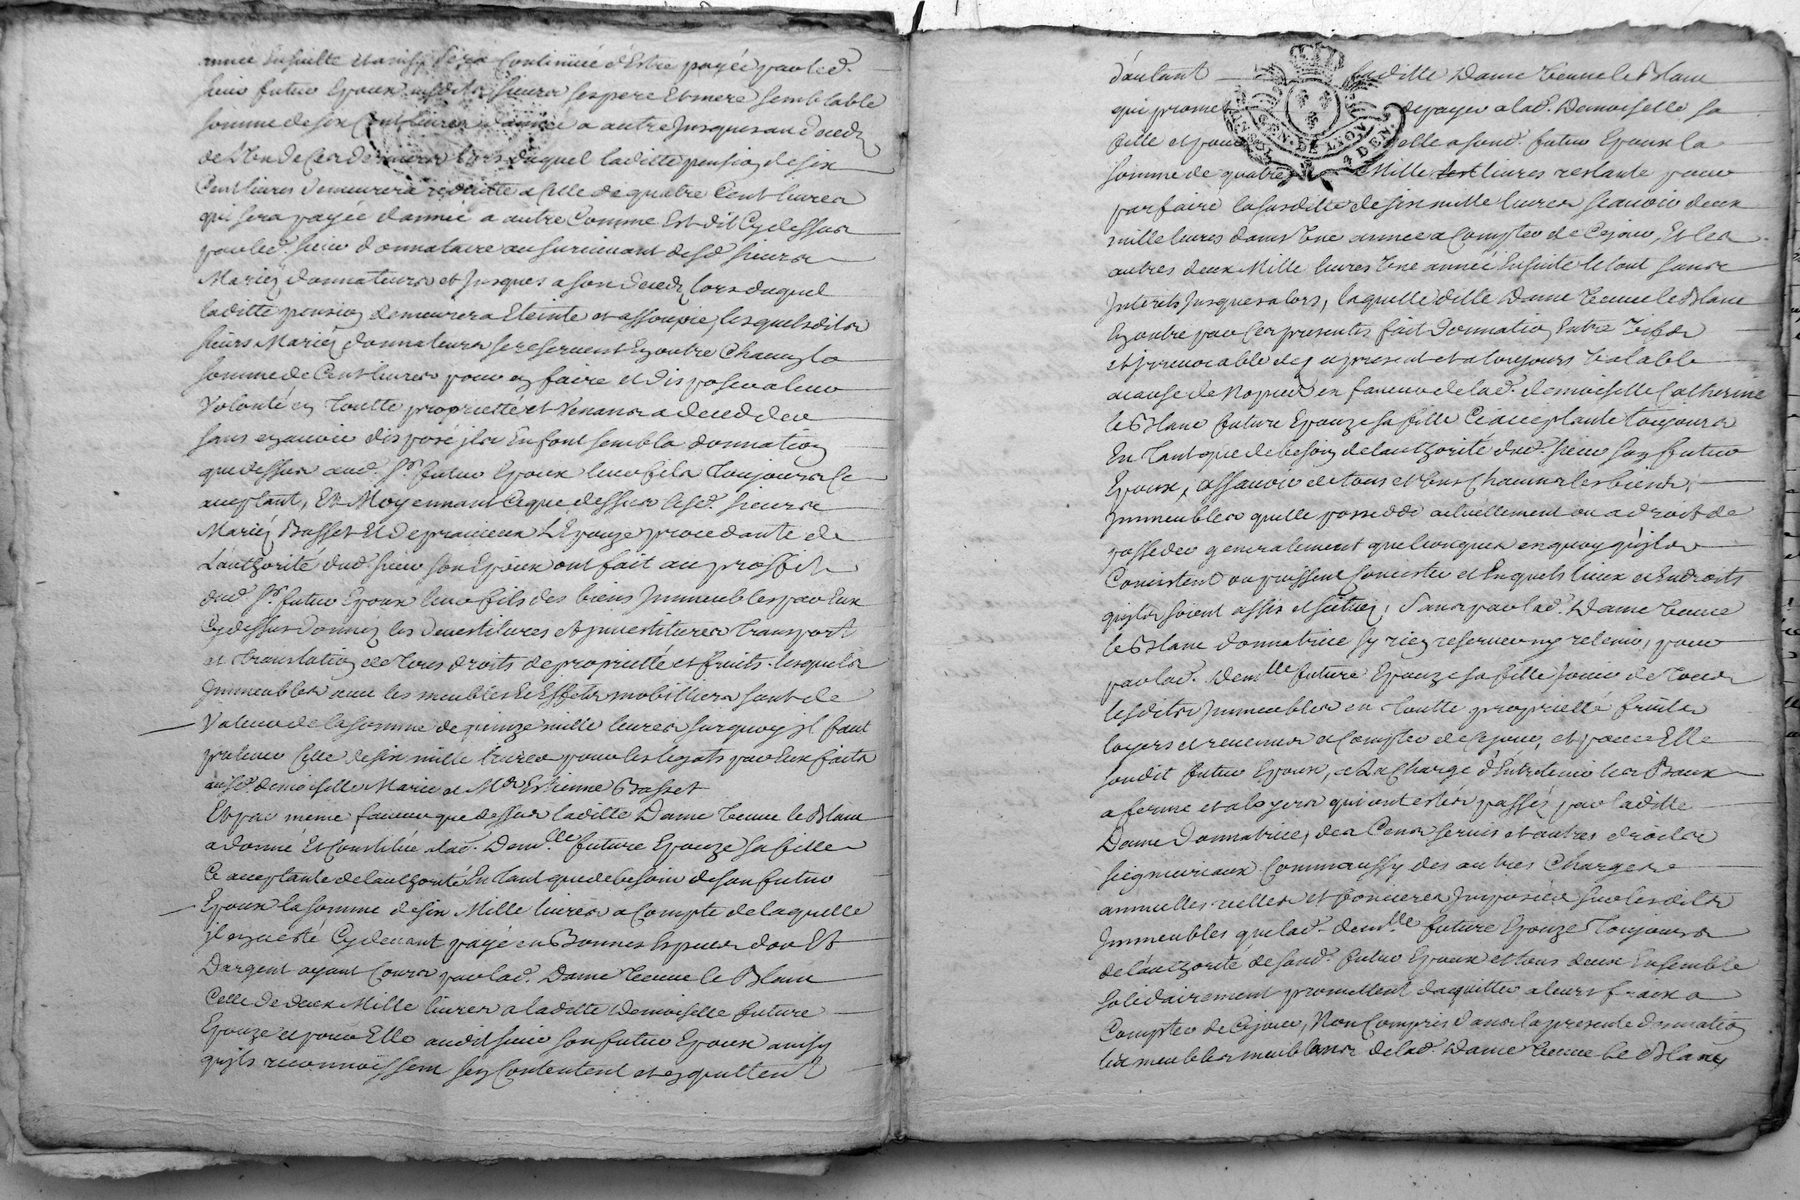 année Ensuitte et ainsy sera Continuée d'Estre payée par led.
sieur futur Epoux ausdits sieurs ses pere Et mere semblable
somme de six Cent livres d'année a autre Jusques au deceds
de L'un de Ces derniers lors duquel laditte pension de six
Cent livres demeurera reduitte a Celle de quatre Cent livres
qui sera payée d'année a autre Comme Est dit Cy dessus
par led. sieur donnataire au survivant desd. sieurs
Mariez donnateurs et Jusques a son deceds lors duquel
laditte pension demeurera Eteinte et assoupie, lesquels dits
sieurs Mariez donnateurs se reservent En outre Chacun la
somme de Cent livres pour en faire et disposer a leur
Volonté en Toutte proprietté et Venans a deceder
sans en avoir disposé ils En font semblable donnation
que dessus aud. Sr. futur Epoux leur fils Toujours Ce
acceptant, Et Moyennant Ce que dessus lesd. sieurs
Mariez Basset Et de L'Epouze procedante de
L'authorité dud. sieur son Epoux ont fait au proffit
dud. Sr. futur Epoux leur fils des biens Immeubles par Eux
Cy dessus donnez les devestitures et Investitures Transport
et translation de Tous droits de proprietté et fruits, lesquels
Immeubles avec les meubles Et Effets mobilliers sont de
Valeur de la somme de quinze mille livres sur quoy il faut
prelever Celle de six mille livres pour les legats par Eux faits
ausd. demoiselle Marie et Mr. Estienne Basset
Et par même faveur que dessus laditte Dame Veuve le Blanc
a donné Et Constitué a lad. Demlle. future Epouze sa fille
Ce acceptante de l'authorité En Tant que de besoin de son futur
Epoux la somme de six Mille livres a Compte de laquelle
il en a esté Cy devant payé en Bonnes Especes d'or Et
D'argent ayant Cours par lad. Dame Veuve le Blanc
Celle de deux Mille livres a laditte Demoiselle future
Epouze et pour Elle audit sieur son futur Epoux ainsy
qu'ils reconnoissent s'en Contentent et en quittent
d'autant laditte Dame Veuve le Blanc
qui promet de payer a lad. Demoiselle sa
fille et pour elle a sond. futur Epoux la
somme de quatre Mille livres restante pour
parfaire la susditte de six mille livres sçavoir deux
mille livres dans Une année a Compter de Ce jour, Et les
autres deux Mille livres Une année Ensuite le tout sans
Interets Jusques alors, laquelle ditte Dame Veuve le Blanc
En outre par Ces presentes fait Donnation Entre Vifs
et Irrevocable des a present et a toujours Valable
a cause de Nopces en faveur de lad. demoiselle Catherine
le Blanc future Epouze sa fille Ce acceptante toujours
En Tant que de besoin de l'authorité dud. sieur son futur
Epoux, assavoir de tous et Uns Chacuns les biens,
Immeubles qu'elle possede actuellement ou a droit de
posseder generalement quelconques en quoy qu'ils
Consistent ou puissent Consister et En quels lieux et Endroits
qu'ils soient assis et scituez, sans par lad. Dame Veuve
le Blanc donnatrice s'y rien reserver ny retenir, pour
par lad. Demlle future Epouze sa fille Jouir de Tous
lesdits Immeubles en Toutte proprietté fruits
loyers et revenus a Compter de Ce jour, et pour Elle
sondit futur Epoux, a la Charge d'Entretenir les Baux
a ferme et a loyers qui ont estés passés par laditte
Dame Donnatrice, des Cens servis et autres droits
seigneuriaux Comm'aussy des autres Charges
annuelles reelles et foncieres Imposées sur lesdits
Immeubles que lad. demlle. future Epouze Toujours
de l'authorité de sond. futur Epoux et tous deux Ensemble
solidairement promettent d'aquitter a leurs fraix a
Compter de Ce jour, Non Compris dans la presente donnation
les meubles meublans de lad. Dame Veuve le Blanc
GEN. DE LION
4 DEN.